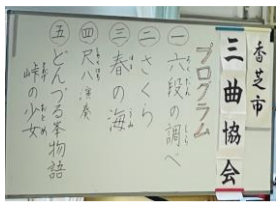 香芝市
三曲協会
プログラム
一 六段の調べ
二 さくら
三 春の海
四 尺八演奏
五 どんづる峯物語
峠の少女